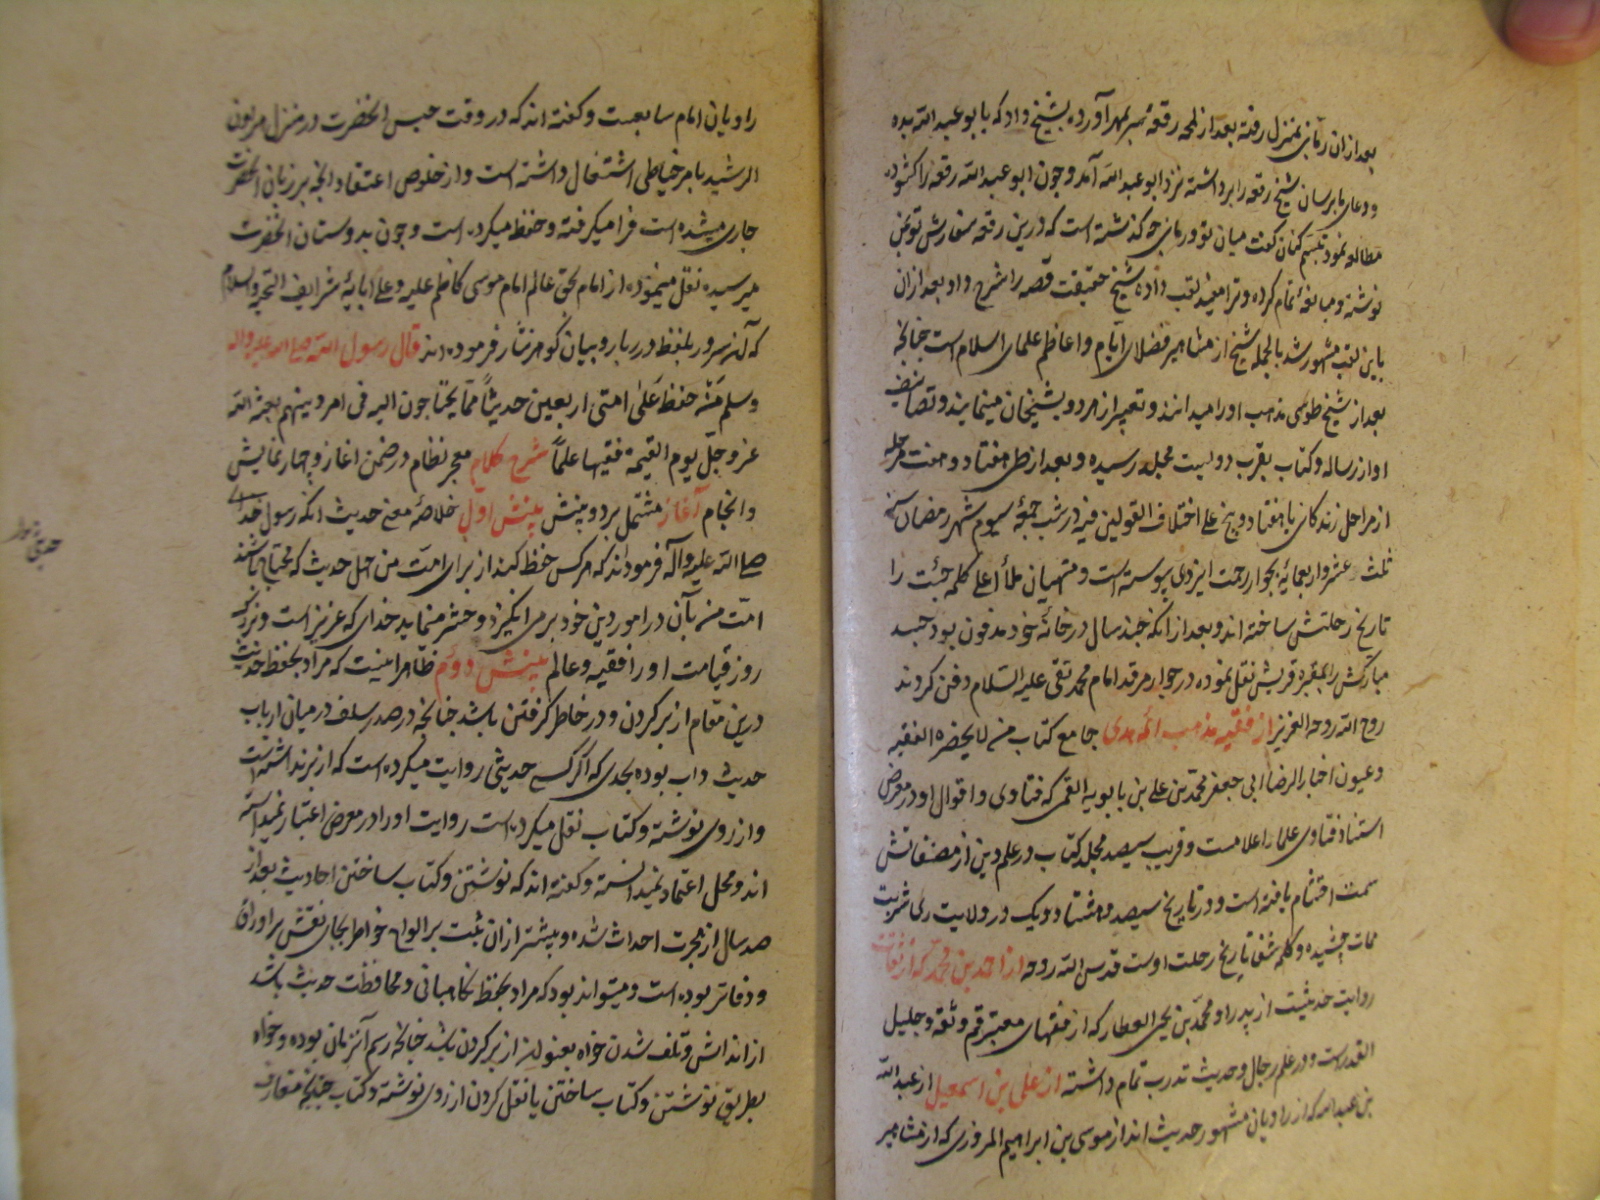 بعد از ان رمانی بمنزل رفته بعد از لمحه رقعهٔ سر بمهر آورده بشیخ داد که بابو عبد الله بده
و دعای ما برسان شیخ رقعه را برداشته نزد ابو عبد الله آمد و چون ابو عبد الله رقعه را کشوده
مطالعه نمود تبسم کنان گفت میان تو و رمانی چه گذشته است که درین رقعه سفارش تو بمن
نوشته و مبالغهٔ تمام کرده و ترا مفید لقب داده شیخ حقیقت قصه را شرح داد و بعد از ان
باین لقب مشهور شد بالجمله شیخ از مشاهیر فضلای ایام و اعاظم علمای اسلام است چنانچه
بعد از شیخ طوسی مذهب او را میدانند و تعبیر از هر دو بشیخان مینمایند و تصانیف
او از رساله و کتاب بقرب دویست مجلد رسیده و بعد از طی هفتاد و هفت مرحله
از مراحل زندگانی یا هفتاد و پنج علی اختلاف القولین فیه در شب جمعهٔ سیوم شهر رمضان سنه
ثلث عشر و اربعمائه بجوار رحمت ایزدی پیوسته است و منهیان ملأ اعلی کلمه جنت را
تاریخ رحلتش ساخته اند و بعد از انکه چند سال در خانهٔ خود مدفون بود جسد
مبارکش را بمقبره قریش نقل نموده در جوار مرقد امام محمد تقی علیه السلام دفن کردند
روح الله روحه العزیز از فقیه مذهب ائمه هدی جامع کتاب من لا یحضره الفقیه
و عیون اخبار الرضا ابی جعفر محمد بن علی بن بابویه القمی که فتاوی و اقوال او در معرض
استناد فتاوی علما را علامت و قریب سیصد مجلد کتاب در علم دین از مصنفاتش
سمت اختتام یافته است و در تاریخ سیصد و هشتاد و یک در ولایت ری شربت
ممات چشیده و کلمه شفا تاریخ رحلت اوست قدس الله روحه از احمد بن محمد که از ثقات
روایت حدیثست از پدر او محمد بن یحیی العطار که از فقهای معتبر قم و ثقه و جلیل
القدرست و در علم رجال و حدیث تدرب تمام داشته از علی بن اسمعیل از عبد الله
بن عبد الله که از راویان مشهور حدیث اند از موسی بن ابراهیم المروزی که از مشاهیر
راویان امام سابعست و گفته اند که در وقت حبس آنحضرت در منزل هرون
الرشید بامر خیاطی اشتغال داشته است و از خلوص اعتقاد آنچه بر زبان آنحضرت
جاری میشده است فرا میگرفته و حفظ میکرده است و چون بدوستان آنحضرت
میرسیده نقل مینموده از امام بحق عالم امام موسی کاظم علیه و علی آبایه شرایف التحیة و السلام
که آن سرور بلفظ درربار و بیان گوهر نثار فرموده اند قال رسول الله صلی الله علیه و اله
و سلم من حفظ علی امتی اربعین حدیثاً مما یحتاجون الیه فی امر دینهم بعثه الله
عز و جل یوم القیمة فقیها علماً شرح کلام معجز نظام در ضمن اغاز و چهار نمایش
و انجام آغاز مشتمل بر دو بینش بینش اول خلاصهٔ معنی حدیث انکه رسول خدای
صلی الله علیه و آله فرموده اند که هر کس حفظ کند از برای امت من چهل حدیث که محتاج باشند
امت من بآن در امور دین خود بر می انگیزد و حشر مینماید خدای که عزیز است و بزرگ
روز قیامت او را فقیه و عالم بینش دوم ظاهر اینست که مراد بحفظ حدیث
درین مقام از بر کردن و در خاطر گرفتن باشد چنانچه در صدر سلف در میان ارباب
حدیث داب بوده بحدی که اگر کسی حدیثی روایت میکرده است که از بر نداشته است
و از روی نوشته و کتاب نقل میکرده است روایت او را در معرض اعتبار نمیداشته
اند و محل اعتماد نمیدانسته و گفته اند که نوشتن و کتاب ساختن احادیث بعد از
صد سال از هجرت احداث شده و پیشتر از ان ثبت بر الواح خواطر بجای نقش بر اوراق
و دفاتر بوده است و میتواند بود که مراد بحفظ نگاهبانی و محافظت حدیث باشد
از اندراس و تلف شدن خواه بعنوان از بر کردن باشد چنانچه رسم آن زمان بوده و خواه
بطریق نوشتن و کتاب ساختن یا نقل کردن از روی نوشته و کتاب چنانچه متعارف